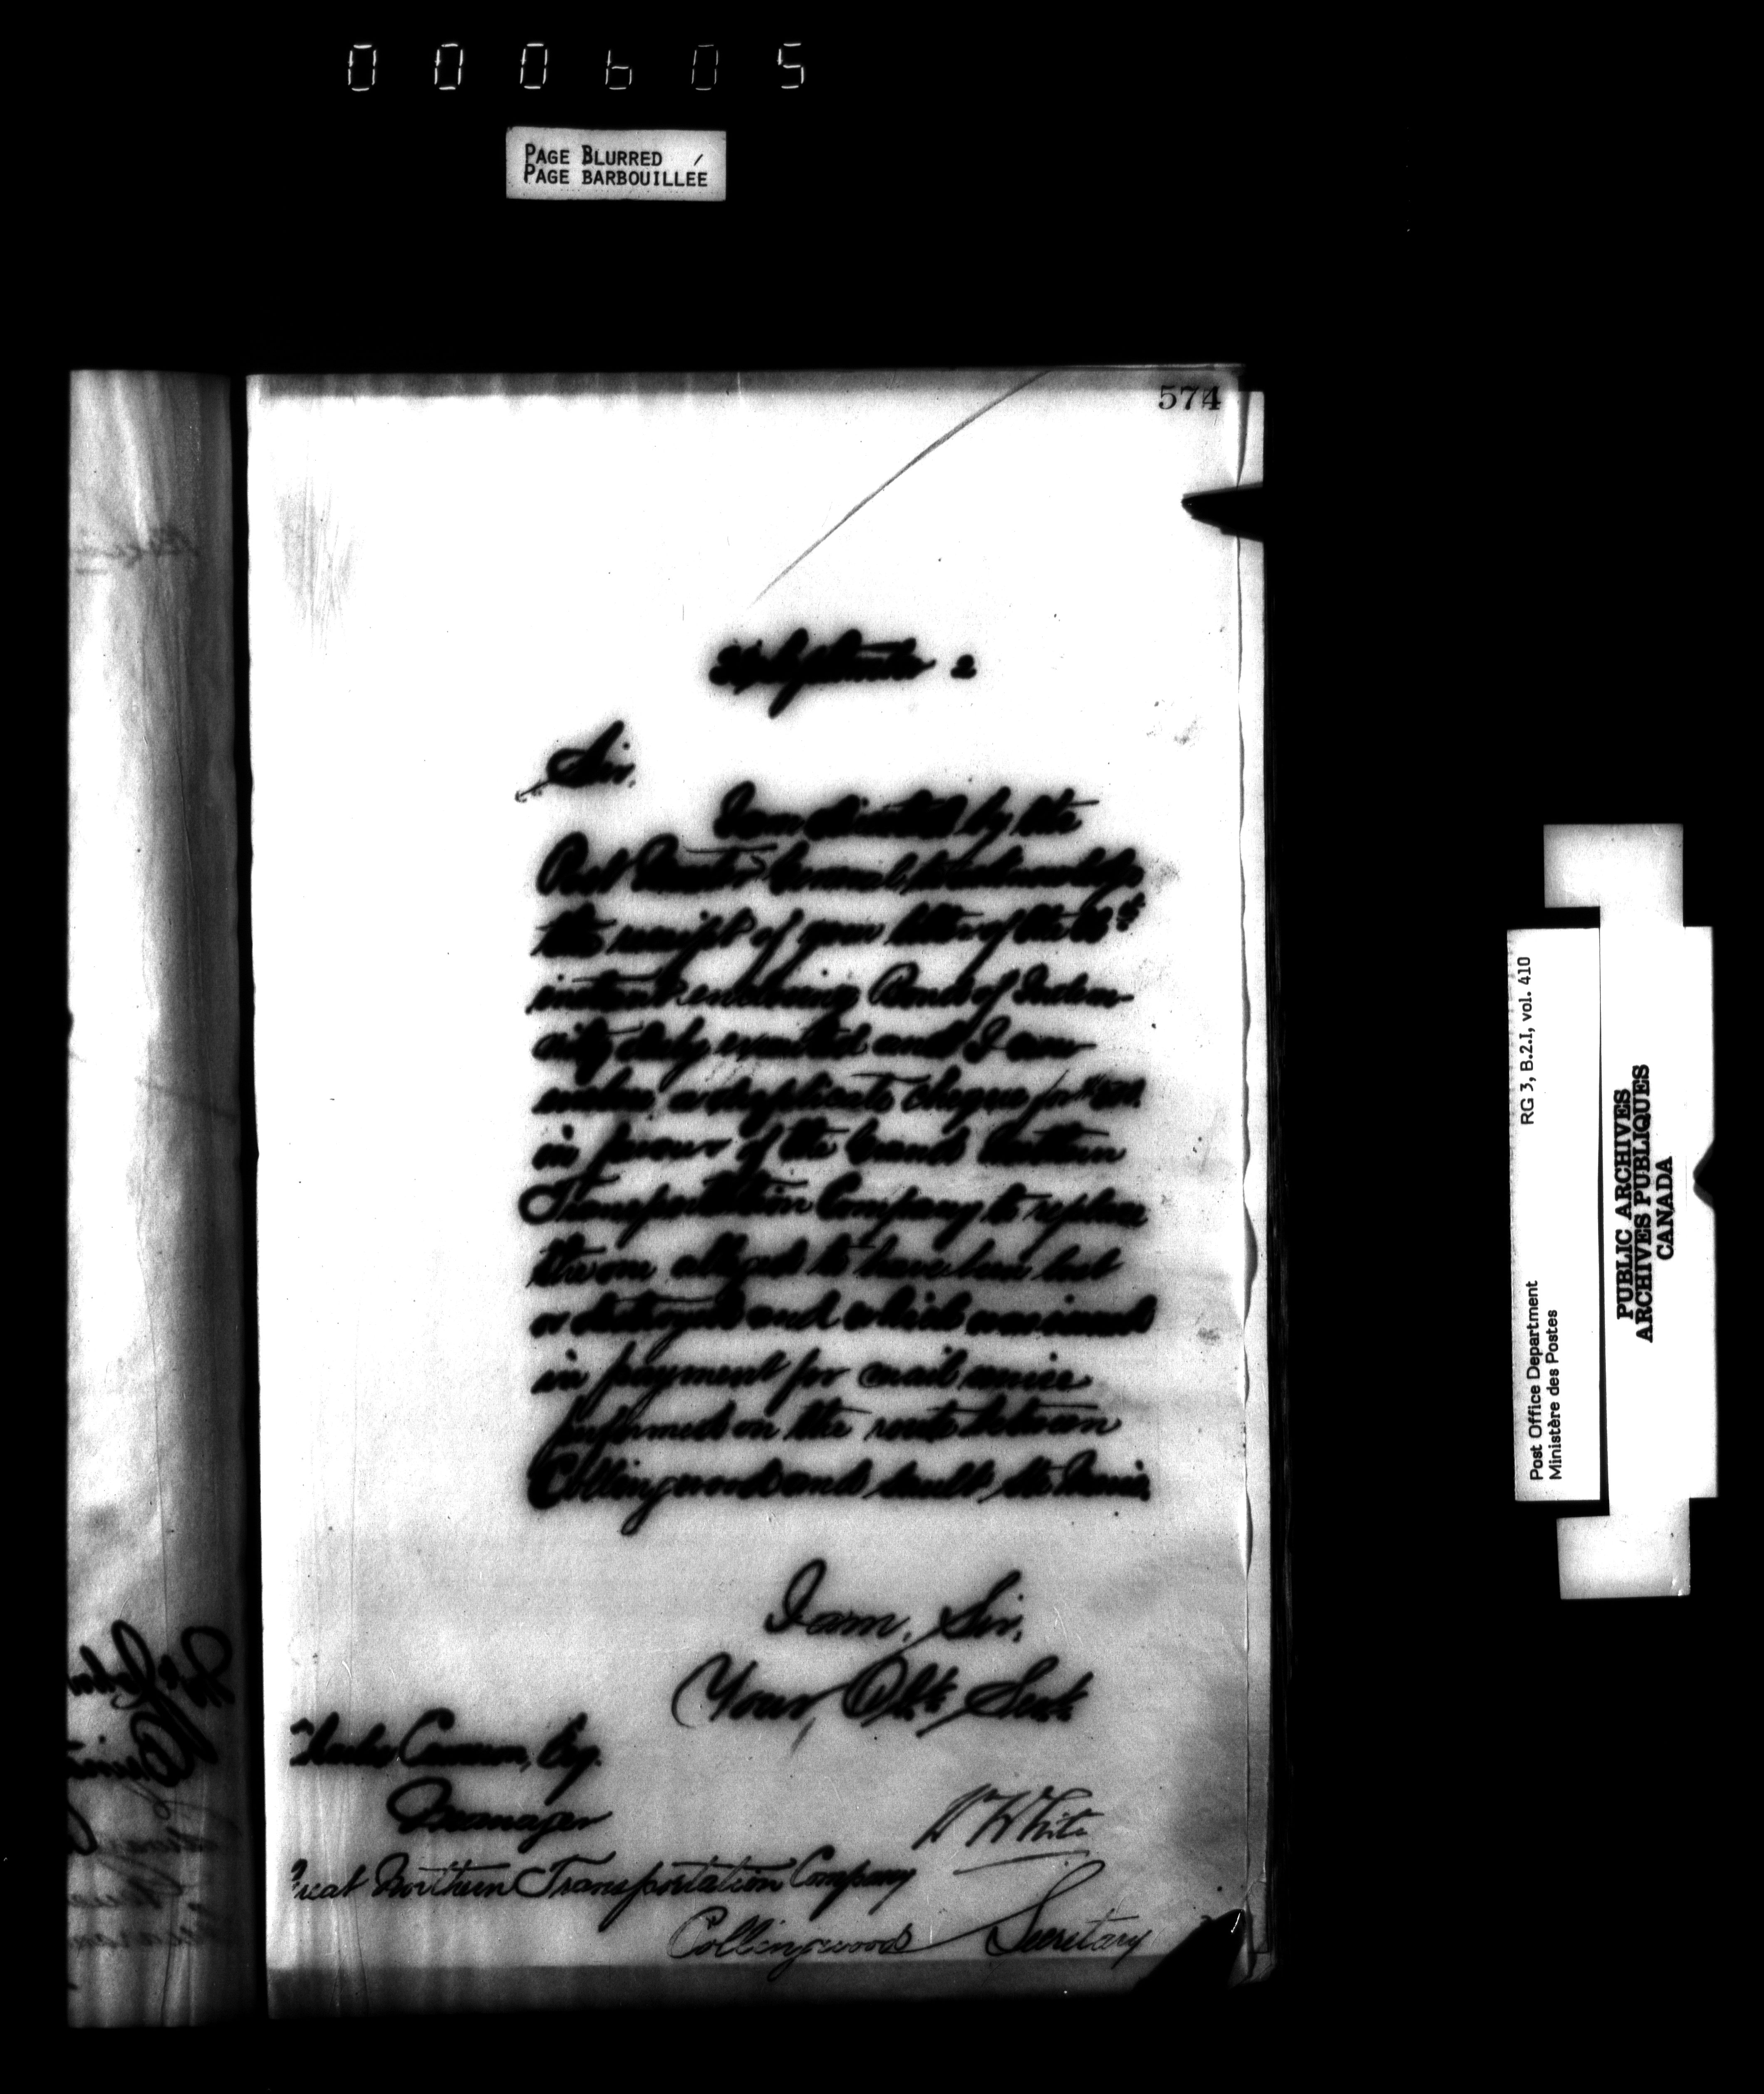 000605
PAGE BLURRED
PAGE BARBOUILLÉE
574
September 2
Sir.
I am directed by the
Post Master General, to acknowledge
the receipt of your letter of the
instant enclosing Bond of Indem
nity duly executed and I now
enclose a duplicate cheque for
in favour of the Great Northern
Transportation Company to replace
the one alleged to have been lost
or destroyed and which was issued
in payment for mail service
performed on the route between
Collingwood and Sault Ste Marie.
I am, Sir,
Your Obt. Servt.
Charles Cameron, Esq.
Manager
Great Northern Transportation Company
Collingwood
Wm White
Secretary
RG 3, B.2.I, vol. 410
Post Office Department
Ministère des Postes
PUBLIC ARCHIVES
ARCHIVES PUBLIQUES
CANADA